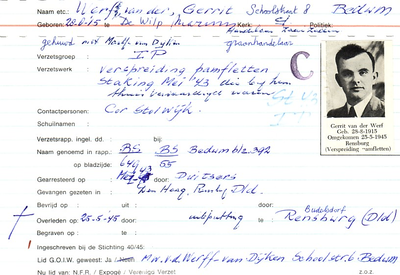 Naam etc.: Werff, van der, Gerrit Schoolstraat 8 Bedum
Geboren: 28-8-15 te De Wilp Marum Kerk: Politiek:
gehuwd met Marth- van Dijken graanhandelaar
Verzetsgroep : L.P
Verzetswerk : verspreiding pamfletten
Staking Mei '43 die bij hem
waren
Contactpersonen: Cor Stolwijk
Schuilnamen :
C
Verzetsrapp. ingel. dd. : bij:
Naam genoemd in rapp.: BS BS Bedum blz. 392
op bladzijde: 649 55
Gearresteerd op : Mei '43 door: Duitsers
Gevangen gezeten in: Den Haag, Dld.
Bevrijd op : uit door:
Overleden op : 25-5-45 door: uitputting te Rensburg (Dld)
Büdelsdorf
Ingeschreven bij de Stichting 40/45:
Lid G.O.I.W. geweest: Ja / Neen Mw. v.d. Werff-van Dijken Schoolstr. 6 Bedum
Nu lid van: N.F.R. / Expogé / Verenigd Verzet z.o.z.
Gerrit van der Werf
Geb. 28-8-1915
Omgekomen 25-5-1945
Rensburg
(Verspreiding pamfletten)